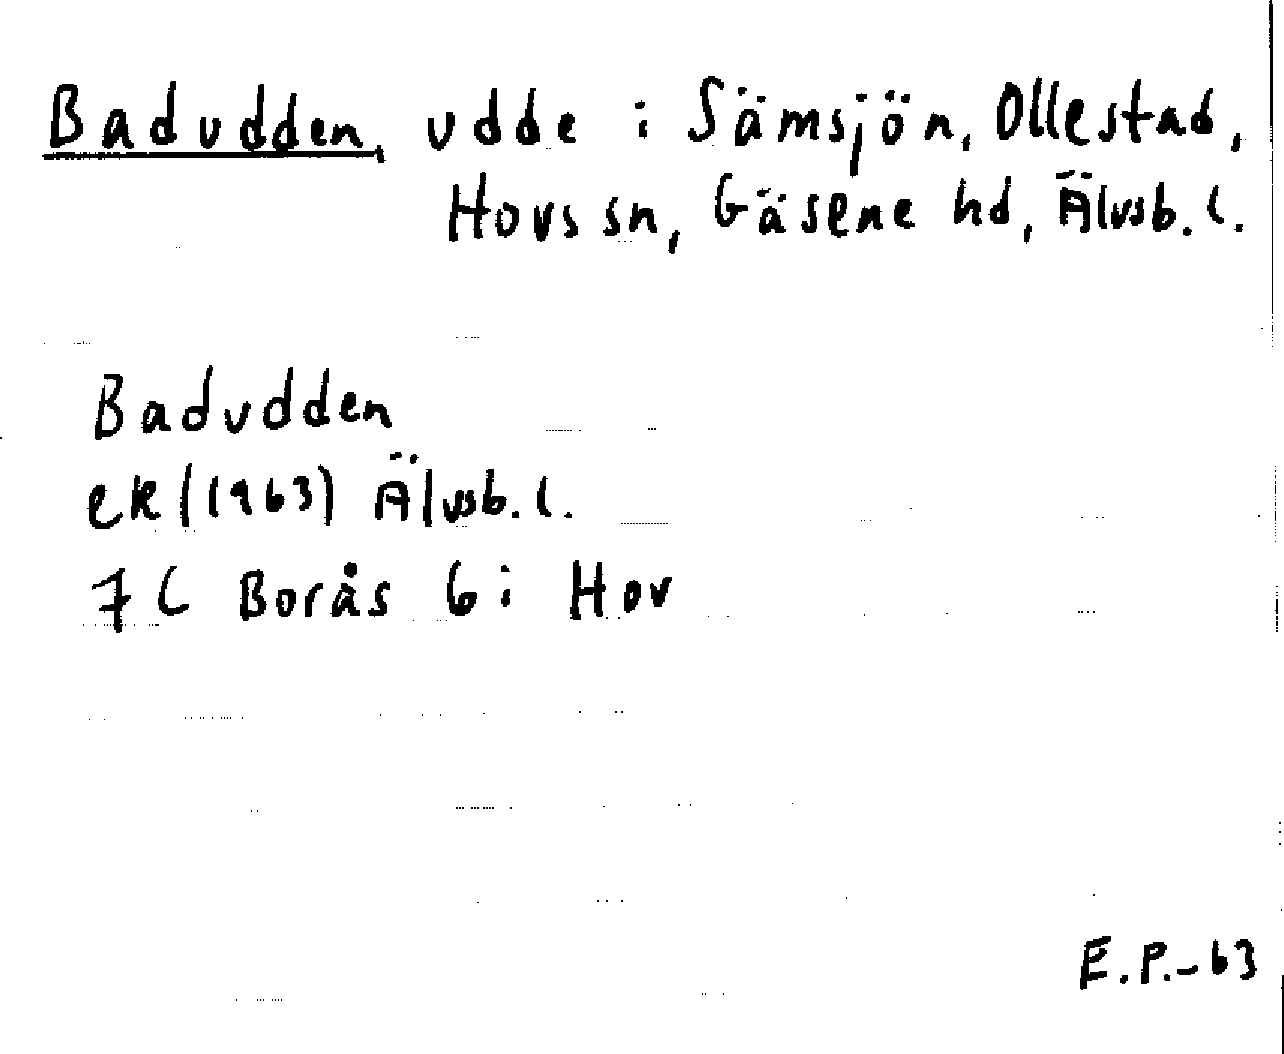 Badudden, udde i Sämsjön, Ollestad,
Hovs sn, Gäsene hd, Älvsb. l.
Badudden
ek (1963) Älvsb. l.
7C Borås 6i Hov
E.P.-63